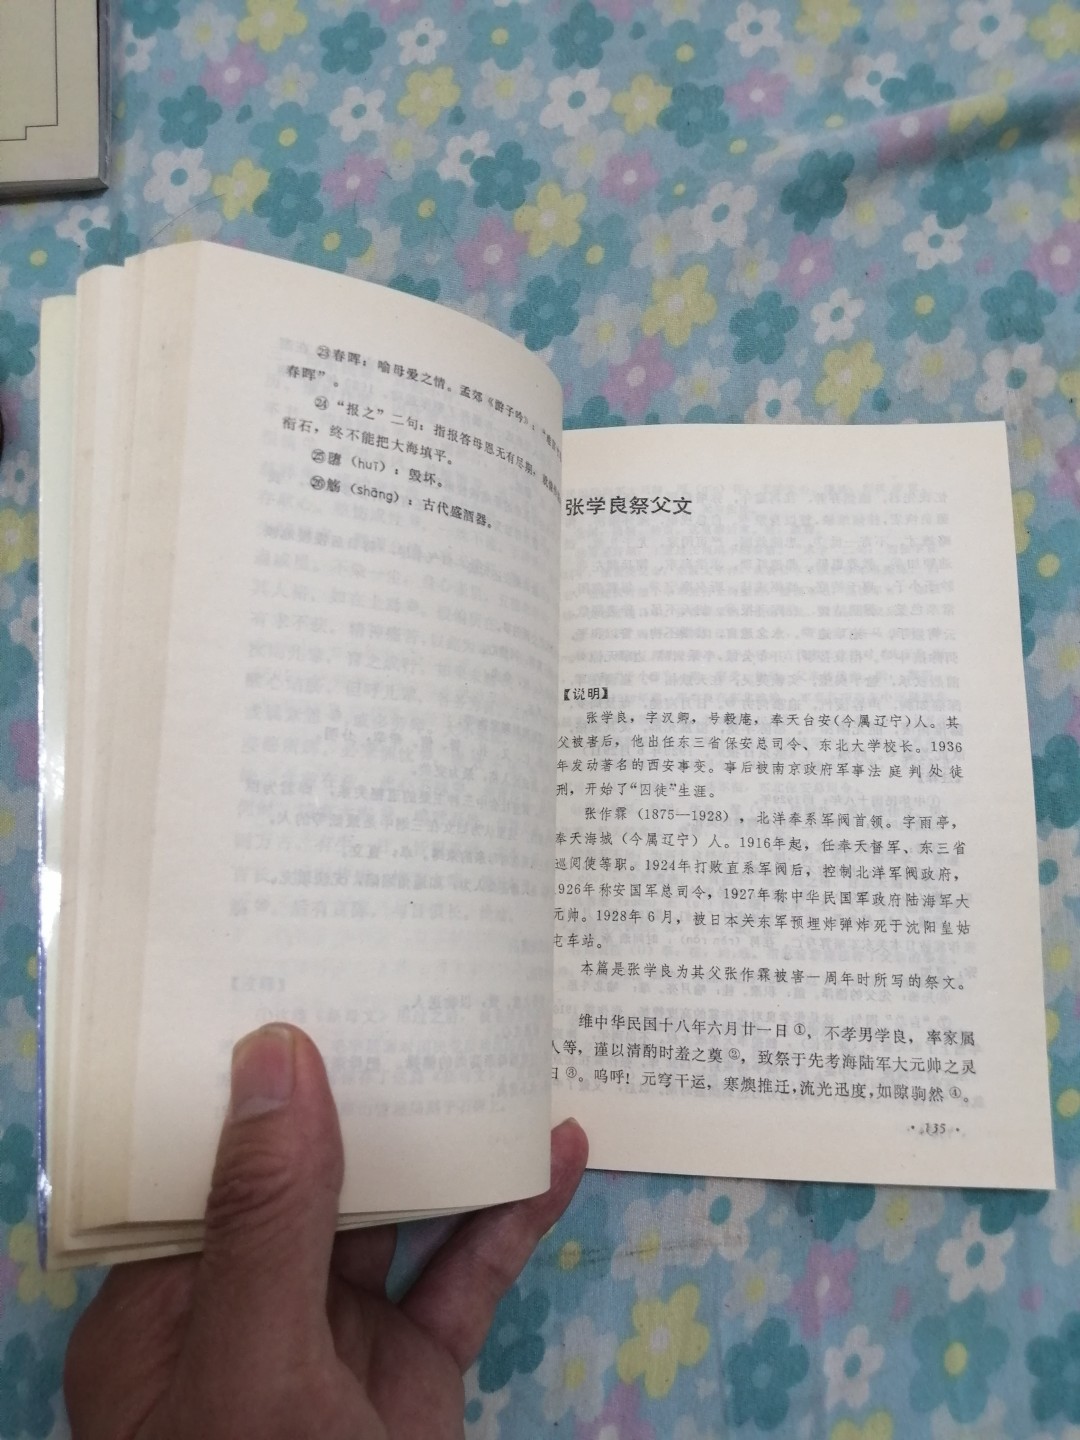 ㉓春晖：喻母爱之情。孟郊《游子吟》：“
春晖”。
㉔“报之”二句：指报答母恩无有尽期，
衔石，终不能把大海填平。
㉕隳（huī）：毁坏。
㉖觞（shāng）：古代盛酒器。
张学良祭父文
【说明】
张学良，字汉卿，号毅庵，奉天台安（今属辽宁）人。其
父被害后，他出任东三省保安总司令、东北大学校长。1936
年发动著名的西安事变。事后被南京政府军事法庭判处徒
刑，开始了“囚徒”生涯。
张作霖（1875—1928），北洋奉系军阀首领。字雨亭，
奉天海城（今属辽宁）人。1916年起，任奉天督军、东三省
巡阅使等职。1924年打败直系军阀后，控制北洋军阀政府，
1926年称安国军总司令，1927年称中华民国军政府陆海军大
元帅。1928年6月，被日本关东军预埋炸弹炸死于沈阳皇姑
屯车站。
本篇是张学良为其父张作霖被害一周年时所写的祭文。
维中华民国十八年六月廿一日①，不孝男学良，率家属
人等，谨以清酌时羞之奠②，致祭于先考海陆军大元帅之灵
曰③。呜呼！元穹干运，寒燠推迁，流光迅度，如隙驹然④。
·135·